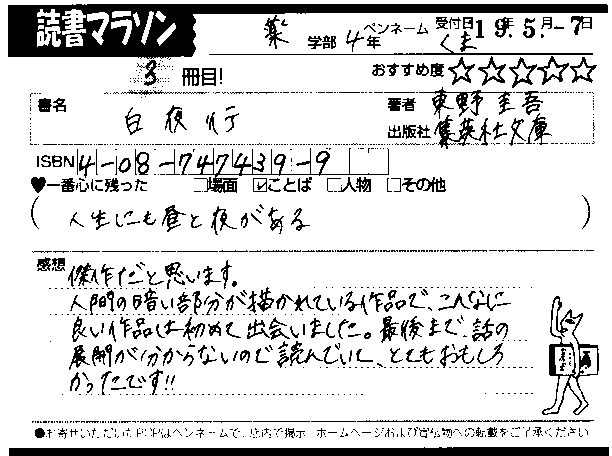 読書マラソン
薬 学部 4年 ペンネーム くま 受付日 19年.5.月-7日
3 冊目! おすすめ度☆☆☆☆☆
書名 白夜行 著者 東野圭吾
出版社 集英社文庫
ISBN 4-08-747439-9
♥一番心に残った □場面 ☑ことば □人物 □その他
(人生にも昼と夜がある)
感想 傑作だと思います。
人間の暗い部分が描かれている作品で、こんなに
良い作品は初めて出会いました。最後まで、話の
展開が分からないので読んでいて、とてもおもしろ
かったです!!
●お寄せいただいたPOPはペンネームで、店内で掲示 ホームページおよび寄稿物への転載をご了承ください